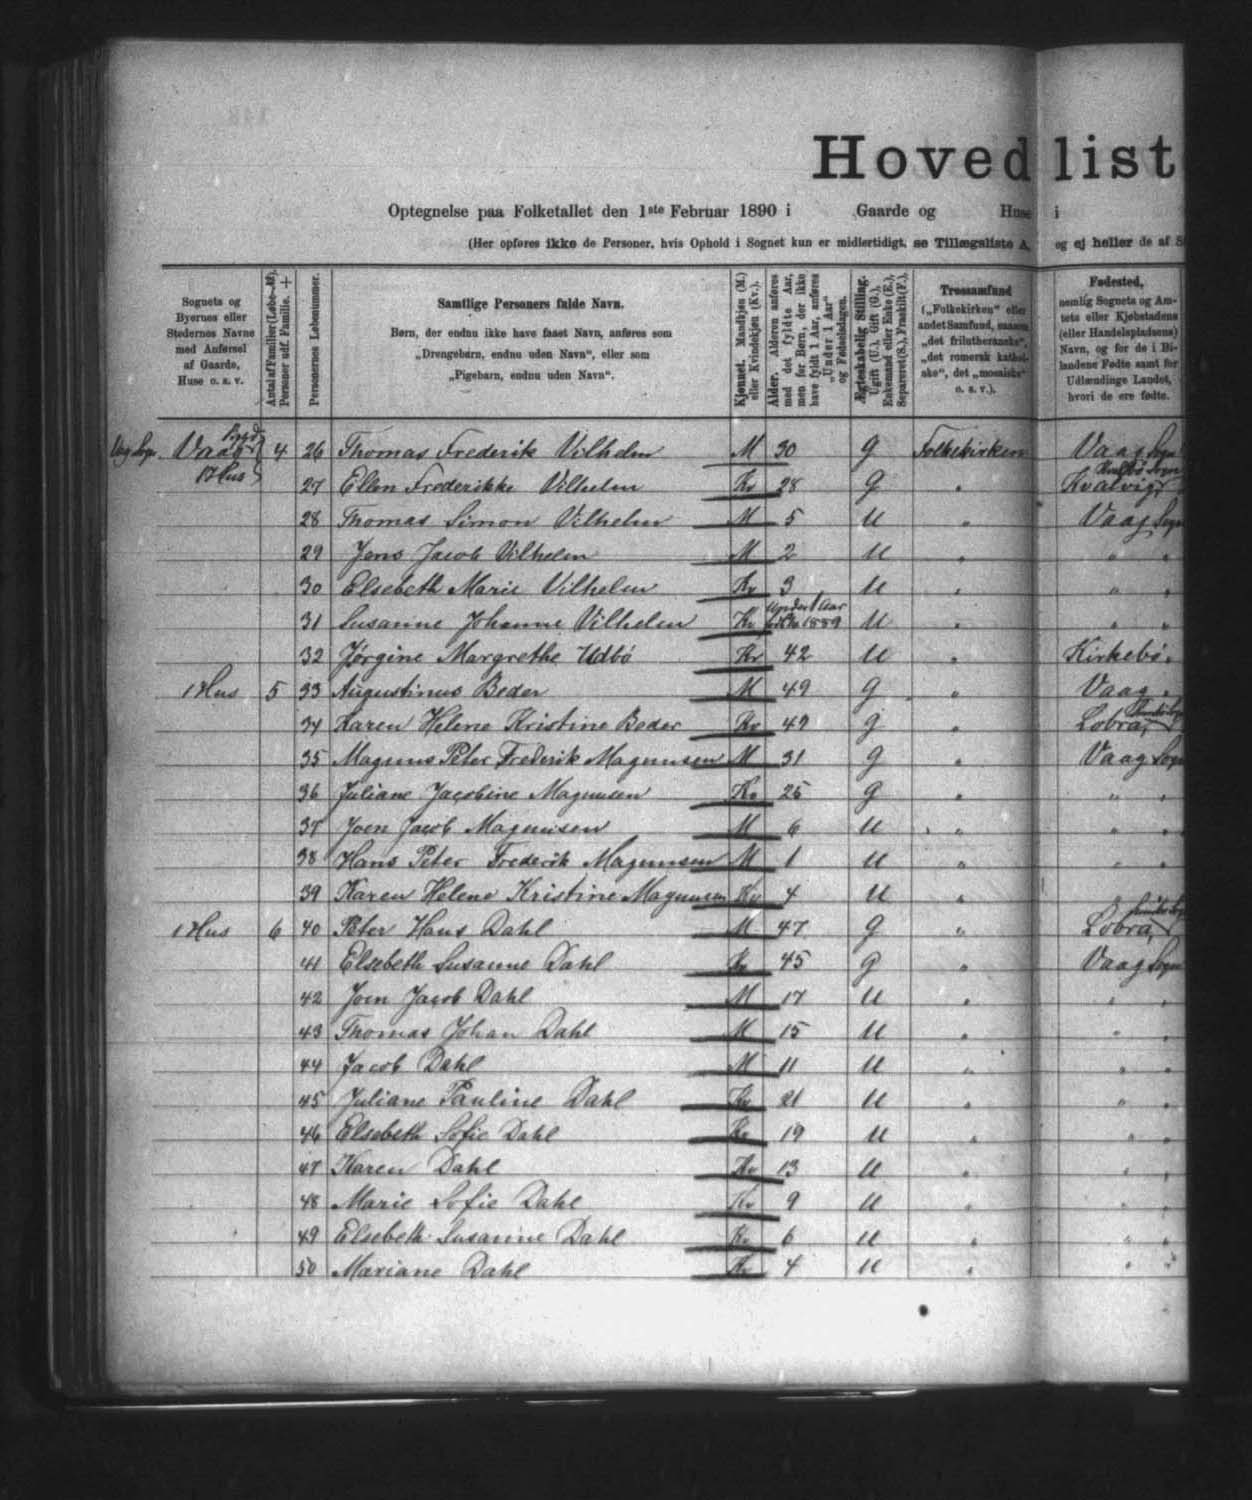 Hovedlist
Optegnelse paa Folketallet den 1ste Februar 1890 i Gaarde og Huse i
(Her opføres ikke de Personer, hvis Ophold i Sognet kun er midlertidigt, se Tillægsliste A, og ej heller de af S
Sognets og Byernes eller Stedernes Navne med Anførsel af Gaarde, Huse o. s. v.
Antal af Familier (Løbe-№). Personer udf. Familie. +
Personernes Løbenummer.
Samtlige Personers fulde Navn.
Børn, der endnu ikke have faaet Navn, anføres som
„Drengebarn, endnu uden Navn“, eller som
„Pigebarn, endnu uden Navn“.
Kjønnet. Mandkjøn (M.) eller Kvindekjøn (Kv.).
Alder. Alderen anføres med det fyldte Aar, men for Børn, der ikke have fyldt 1 Aar, anføres „Under 1 Aar“ og Fødselsdagen.
Ægteskabelig Stilling. Ugift (U.), Gift (G.), Enkemand eller Enke (E.), Separeret (S.), Fraskilt (F.).
Trossamfund
(„Folkekirken“ eller
andet Samfund, saasom
„det frilutheranske“,
„det romersk kathol-
ske“, det „mosaiske“
o. s. v.).
Fødested,
nemlig Sognets og Am-
tets eller Kjøbstadens
(eller Handelspladsens)
Navn, og for de i Bi-
landene Fødte samt for
Udlændinge Landet,
hvori de ere fødte.
Vaag Sogn. Vaag Bygd 4 26 Thomas Frederik Vilhelm M 30 G Folkekirken Vaag Sogn
1 Hus 27 Ellen Frederikke Vilhelm Kv 28 G " Kvalvig, Sogn
28 Thomas Simon Vilhelm M 5 U " Vaag Sogn
29 Jens Jacob Vilhelm M 2 U " " "
30 Elsebeth Marie Vilhelm Kv 3 U " " "
31 Susanne Johanne Vilhelm Kv Under 1 Aar 1889 U " " "
32 Jørgine Margrethe Udbø Kv 42 U " Kirkebø "
1 Hus 5 33 Augustinus Beder M 49 G " Vaag "
34 Karen Helene Kristine Beder Kv 49 G " Lobra,
35 Magnus Peter Frederik Magnussen M 31 G " Vaag Sogn
36 Juliane Jacobine Magnusen Kv 25 G " " "
37 Joen Jacob Magnusen M 6 U " " "
38 Hans Peter Frederik Magnusen M 1 U " " "
39 Karen Helene Kristine Magnusen Kv 4 U " " "
1 Hus 6 40 Peter Hans Dahl M 47 G " Lobra,
41 Elsebeth Susanne Dahl Kv 45 G " Vaag Sogn
42 Joen Jacob Dahl M 17 U " " "
43 Thomas Johan Dahl M 15 U " " "
44 Jacob Dahl M 11 U " " "
45 Juliane Pauline Dahl Kv 21 U " " "
46 Elsebeth Sofie Dahl Kv 19 U " " "
47 Karen Dahl Kv 13 U " " "
48 Marie Sofie Dahl Kv 9 U " " "
49 Elsebeth Susanne Dahl Kv 6 U " " "
50 Mariane Dahl Kv 4 U " " "